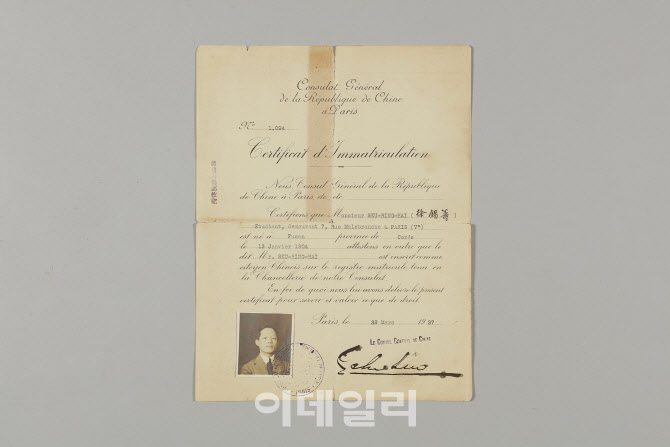 Consulat Général
de la République de Chine
à Paris
No 1,094
Certificat d'Immatriculation
Nous Consul Général de la République
de Chine à Paris
Certifions que Monsieur SEU-RING-HAI (徐嶺海)
Etudiant, demeurant 7, Rue Malebranche à PARIS (Ve)
est né à Fusan province de Corée
le 13 Janvier 1904 attestons en outre que le
dit Mr. SEU-RING-HAI est inscrit comme
citoyen Chinois sur le registre matricule tenu en
la Chancellerie de notre Consulat.
En foi de quoi nous lui avons délivré le présent
certificat pour servir et valoir ce que de droit.
Paris, le 22 Mars 1927
LE CONSUL GENERAL DE CHINE
이데일리